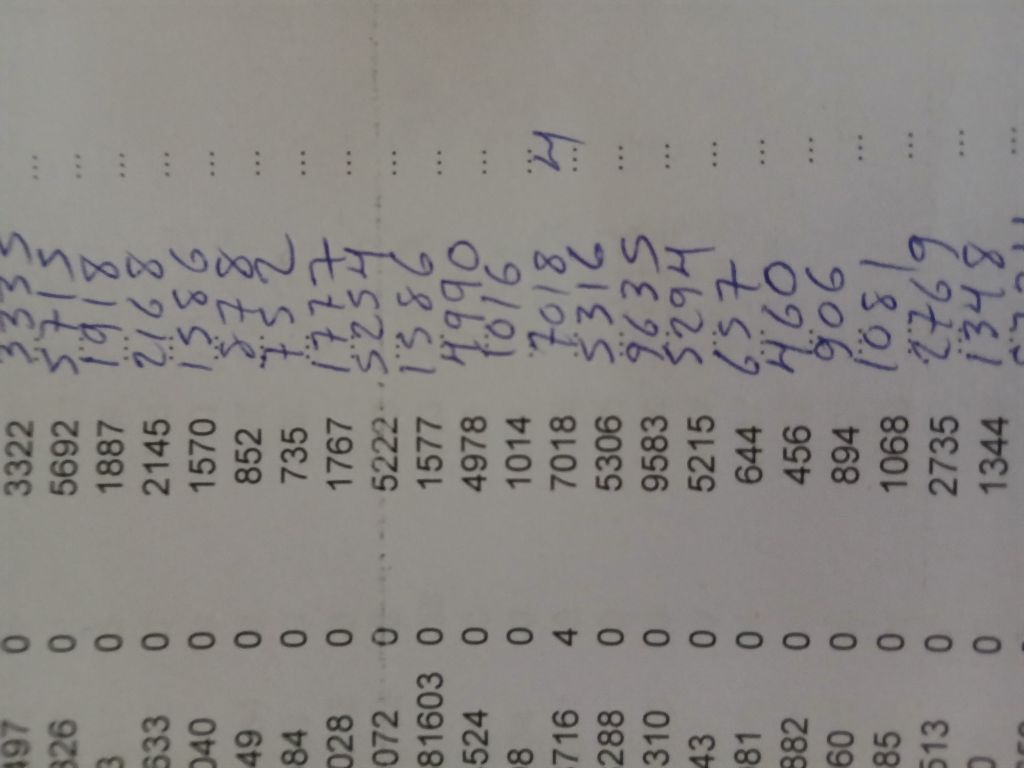 497 0 3322 3335 ...
326 0 5692 5715 ...
3 0 1887 1918 ...
633 0 2145 2168 ...
040 0 1570 1586 ...
49 0 852 878 ...
84 0 735 752 ...
028 0 1767 1777 ...
072 0 5222 5254 ...
81603 0 1577 1586 ...
524 0 4978 4990 ...
8 0 1014 1016 ...
716 4 7018 7018 4
288 0 5306 5316 ...
310 0 9583 9635 ...
43 0 5215 5294 ...
081 0 644 657 ...
882 0 456 460 ...
60 0 894 906 ...
85 0 1068 1081 ...
513 0 2735 2769 ...
0 0 1344 1348 ...